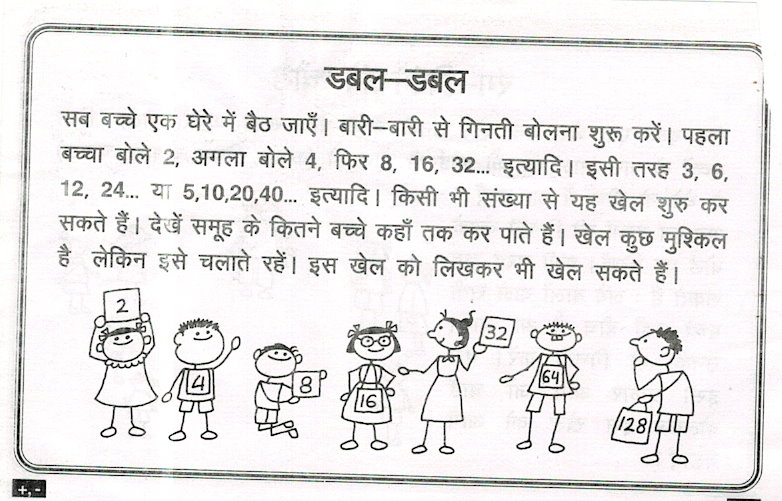 डबल–डबल
सब बच्चे एक घेरे में बैठ जाएँ। बारी–बारी से गिनती बोलना शुरू करें। पहला
बच्चा बोले 2, अगला बोले 4, फिर 8, 16, 32... इत्यादि। इसी तरह 3, 6,
12, 24... या 5,10,20,40... इत्यादि। किसी भी संख्या से यह खेल शुरु कर
सकते हैं। देखें समूह के कितने बच्चे कहाँ तक कर पाते हैं। खेल कुछ मुश्किल
है लेकिन इसे चलाते रहें। इस खेल को लिखकर भी खेल सकते हैं।
2
4
8
16
32
64
128
+,-